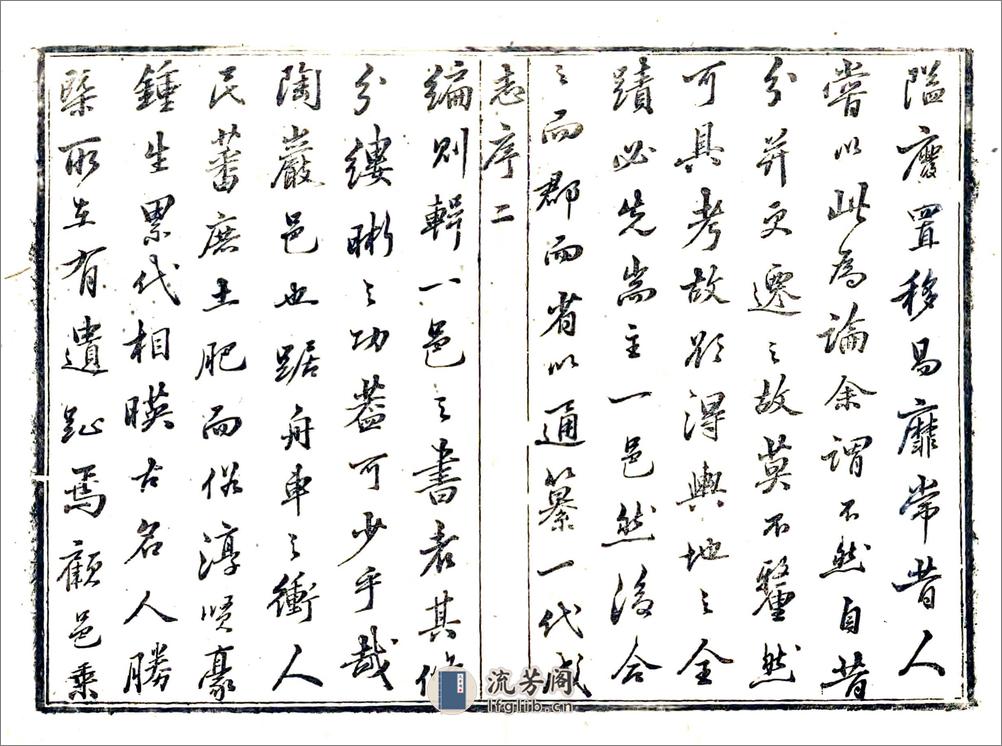 隘廢置移易靡常昔人
嘗以此為論余謂不然自昔
分并更遷之故莫不釐然
可具考故欲得輿地之全
蹟必先耑主一邑然後合
之而郡而省以通纂一代成
志序二
編則輯一邑之書者其條
分縷晰之功葢可少乎哉
陶巖邑也踞舟車之衝人
民蕃庶土肥而俗淳賢豪
鍾生累代相暎古名人勝
槩所在有遺趾焉顧邑乘
流芳阁
lfglib.cn